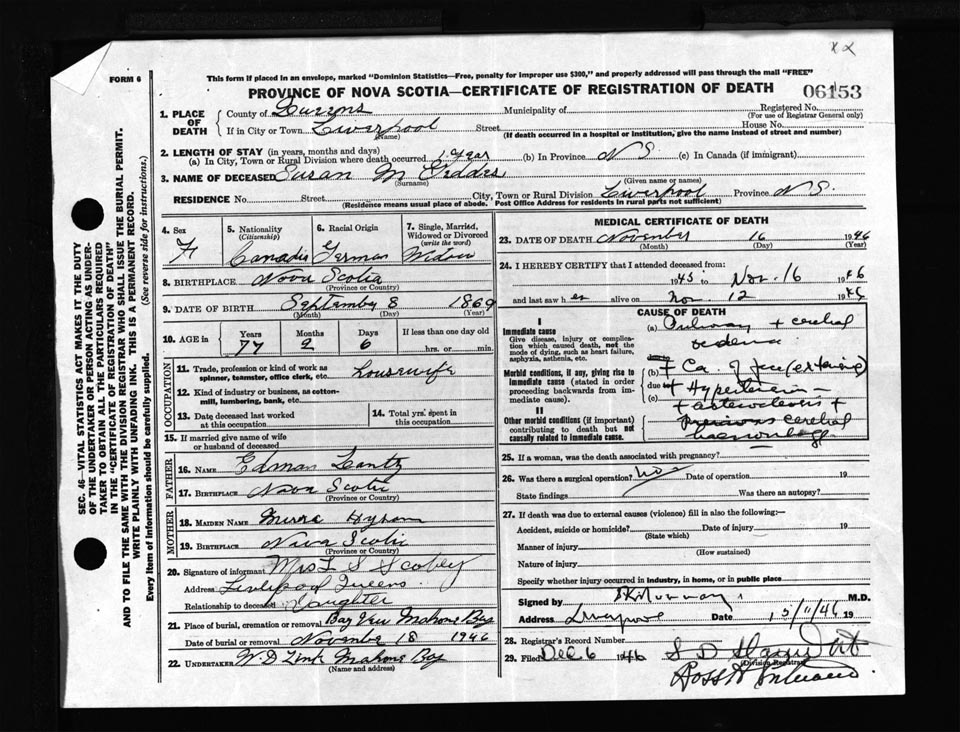 x2
FORM 6
This form if placed in an envelope, marked "Dominion Statistics—Free, penalty for improper use $300," and properly addressed will pass through the mail "FREE"
PROVINCE OF NOVA SCOTIA—CERTIFICATE OF REGISTRATION OF DEATH
06153
SEC. 46—VITAL STATISTICS ACT MAKES IT THE DUTY
OF THE UNDERTAKER OR PERSON ACTING AS UNDER-
TAKER TO OBTAIN ALL THE PARTICULARS REQUIRED
IN THE "CERTIFICATE OF REGISTRATION OF DEATH"
AND TO FILE THE SAME WITH THE DIVISION REGISTRAR WHO SHALL ISSUE THE BURIAL PERMIT.
WRITE PLAINLY WITH UNFADING INK. THIS IS A PERMANENT RECORD.
Every item of Information should be carefully supplied. (See reverse side for instructions.)
1. PLACE OF DEATH
County of Municipality of Registered No.
(For use of Registrar General only)
If in City or Town Liverpool Street House No.
(Name) (If death occurred in a hospital or institution, give the name instead of street and number)
2. LENGTH OF STAY (in years, months and days)
(a) In City, Town or Rural Division where death occurred 1 year (b) In Province N S. (c) In Canada (if immigrant)
3. NAME OF DECEASED Susan M
(Surname) (Given name or names)
RESIDENCE No. Street City, Town or Rural Division Liverpool Province N S.
(Residence means usual place of abode. Post Office Address for residents in rural parts not sufficient)
4. Sex F
5. Nationality (Citizenship)
6. Racial Origin German
7. Single, Married, Widowed or Divorced (write the word) Widow
8. BIRTHPLACE Nova Scotia
(Province or Country)
9. DATE OF BIRTH September 8 1869
(Month) (Day) (Year)
10. AGE in Years Months Days If less than one day old
77 2 6 hrs. or min.
OCCUPATION
11. Trade, profession or kind of work as spinner, teamster, office clerk, etc. Housewife
12. Kind of industry or business, as cotton-mill, lumbering, bank, etc.
13. Date deceased last worked at this occupation
14. Total yrs. spent in this occupation
15. If married give name of wife or husband of deceased
FATHER
16. NAME Lantz
17. BIRTHPLACE Nova Scotia
(Province or Country)
MOTHER
18. MAIDEN NAME
19. BIRTHPLACE Nova Scotia
(Province or Country)
20. Signature of informant Mrs L S Scobey
Address Liverpool Queens
Relationship to deceased Daughter
21. Place of burial, cremation or removal Bay View Mahone Bay
Date of burial or removal November 18 1946
22. UNDERTAKER W. D Zink Mahone Bay
(Name and address)
MEDICAL CERTIFICATE OF DEATH
23. DATE OF DEATH November 16 1946
(Month) (Day) (Year)
24. I HEREBY CERTIFY that I attended deceased from:
1945 to Nov. 16 1946
and last saw her alive on Nov. 12 1946
CAUSE OF DEATH
I
Immediate cause
Give disease, injury or complication which caused death, not the mode of dying, such as heart failure, asphyxia, asthenia, etc.
Morbid conditions, if any, giving rise to immediate cause (stated in order proceeding backwards from immediate cause).
II
Other morbid conditions (if important) contributing to death but not causally related to immediate cause.
(a) + cerebral
oedema
(b) Ca. of
due to + Hypertension
(c)
cerebral
haemorrhage
25. If a woman, was the death associated with pregnancy?
26. Was there a surgical operation? No Date of operation 19
State findings Was there an autopsy?
27. If death was due to external causes (violence) fill in also the following:—
Accident, suicide or homicide? Date of injury 19
(State which)
Manner of injury
(How sustained)
Nature of injury
Specify whether injury occurred in industry, in home, or in public place
Signed by M.D.
Address Liverpool Date 15/11/46 19
28. Registrar's Record Number
29. Filed Dec 6 1946
(Division Registrar)